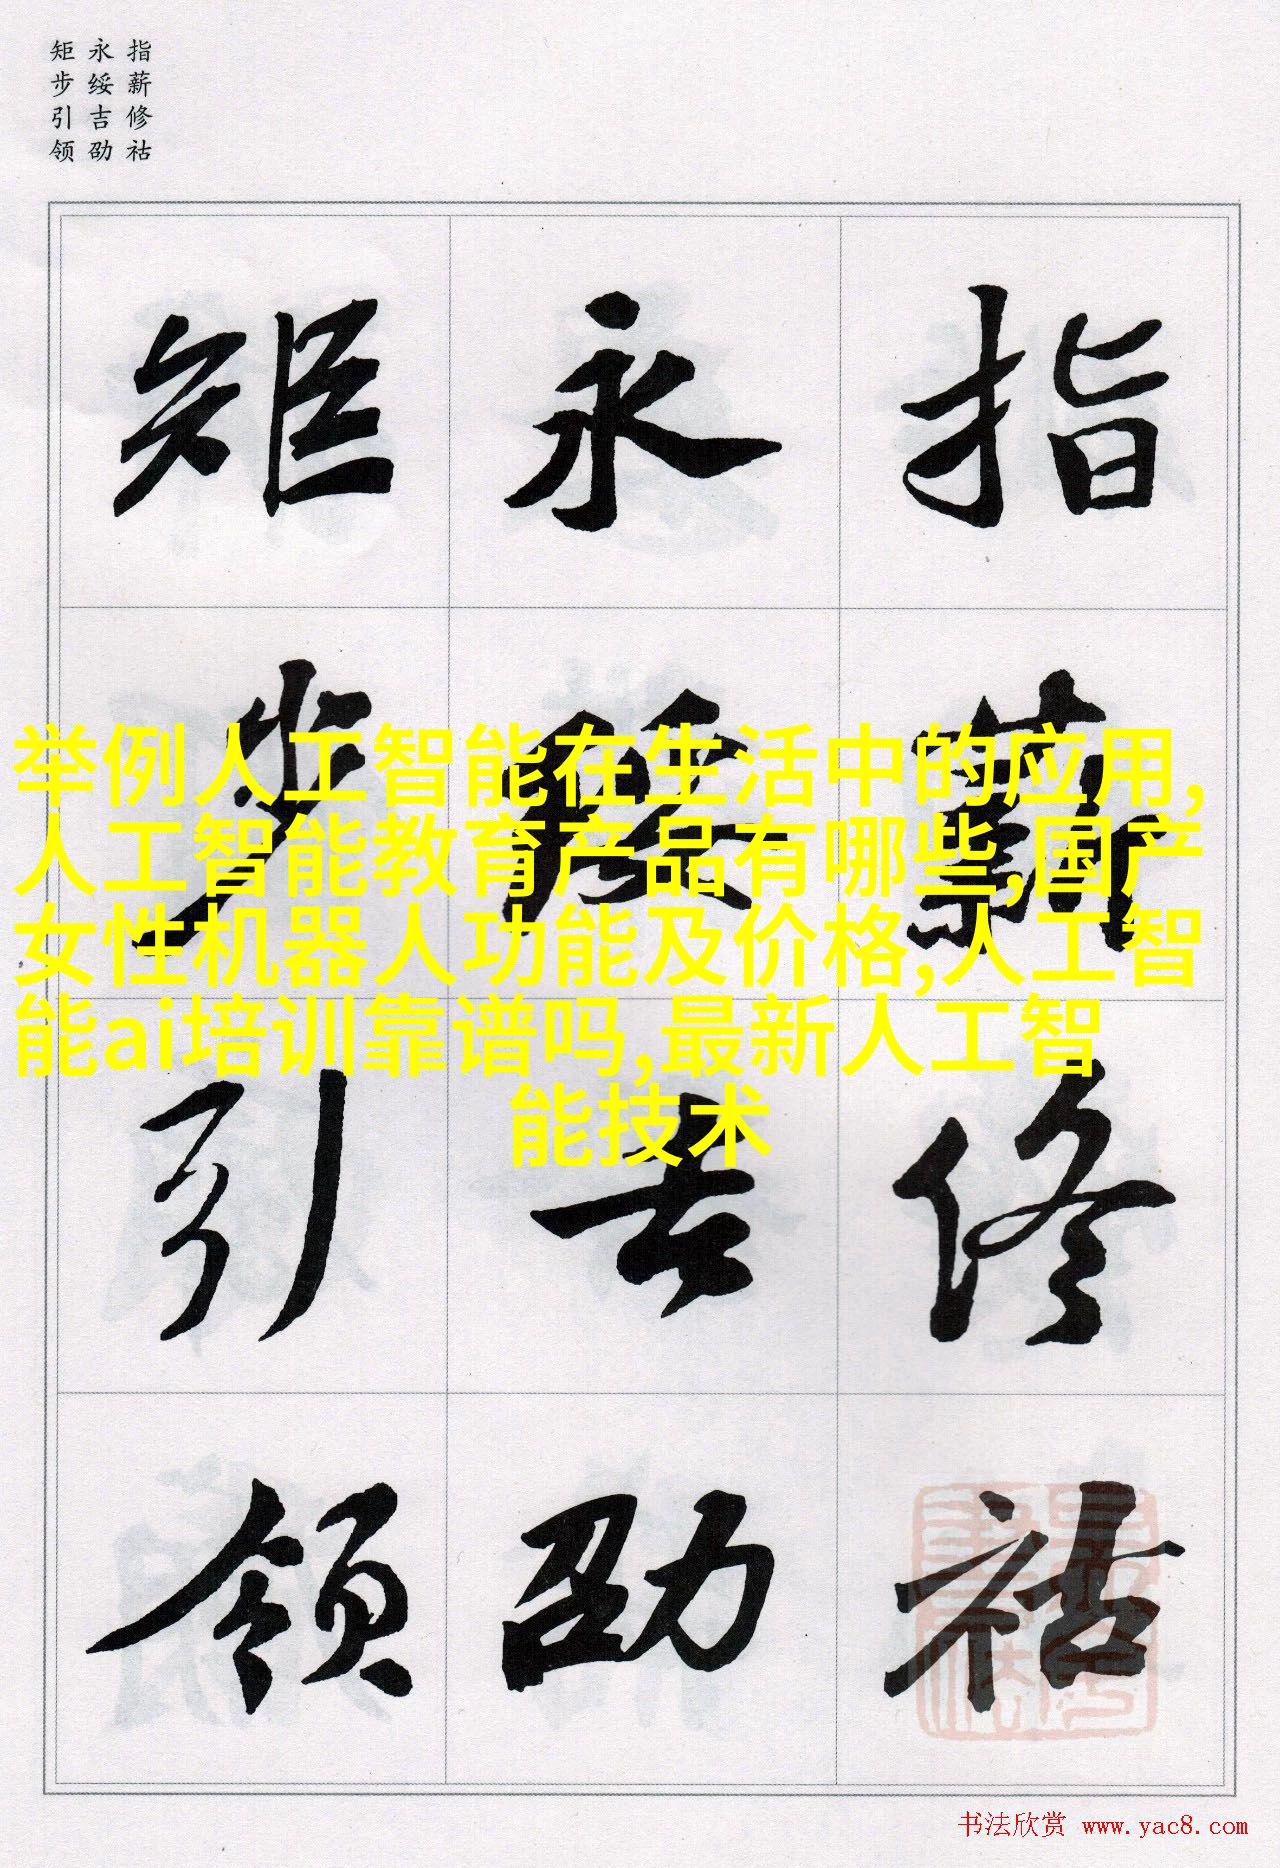 指薪修祜
永绥吉劭
矩步引领
指薪修祜
永绥吉劭
矩步引领
举例人工智能在生活中的应用,
人工智能教育产品有哪些,国产
女性机器人功能及价格,人工智
能ai培训靠谱吗,最新人工智
能技术
书法欣赏 www.yac8.com